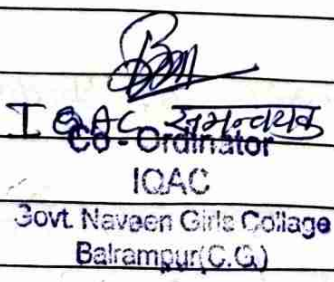 IQAC समन्वयक
Co-Ordinator
IQAC
Govt. Naveen Girls Collage
Balrampur(C.G.)